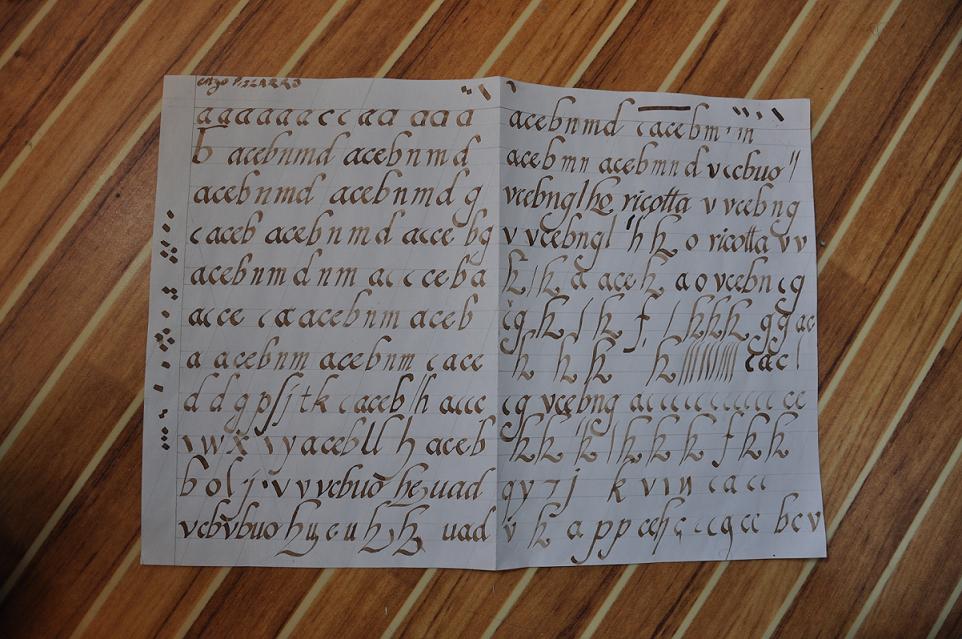 aaaaaaccaa aaa
b acebnmd acebnmd
acebnmd acebnmd g
caceb acebnmd acce bg
acebnmdnm acccceba
acce caacebnm aceb
a acebnm acebnm cace
ddgpſjtk caceb h accc
vwx vyacebll h aceb
bolj·vvvcbuo heuad
vcbvbuo uad
acebnmd cacebm in
acebmn acebmnd vccbuo
vcebnglho ricotta v vcebng
v vcebngl h k o ricotta vv
k l k a ace k a o vcebn cg
cg k l k f l k k k g g ac
h k k k cac
cg vcebng acccccccc cc
k k k l k k k f k k
qy7j k v i n cacc
v k a pp ccgcc bcv